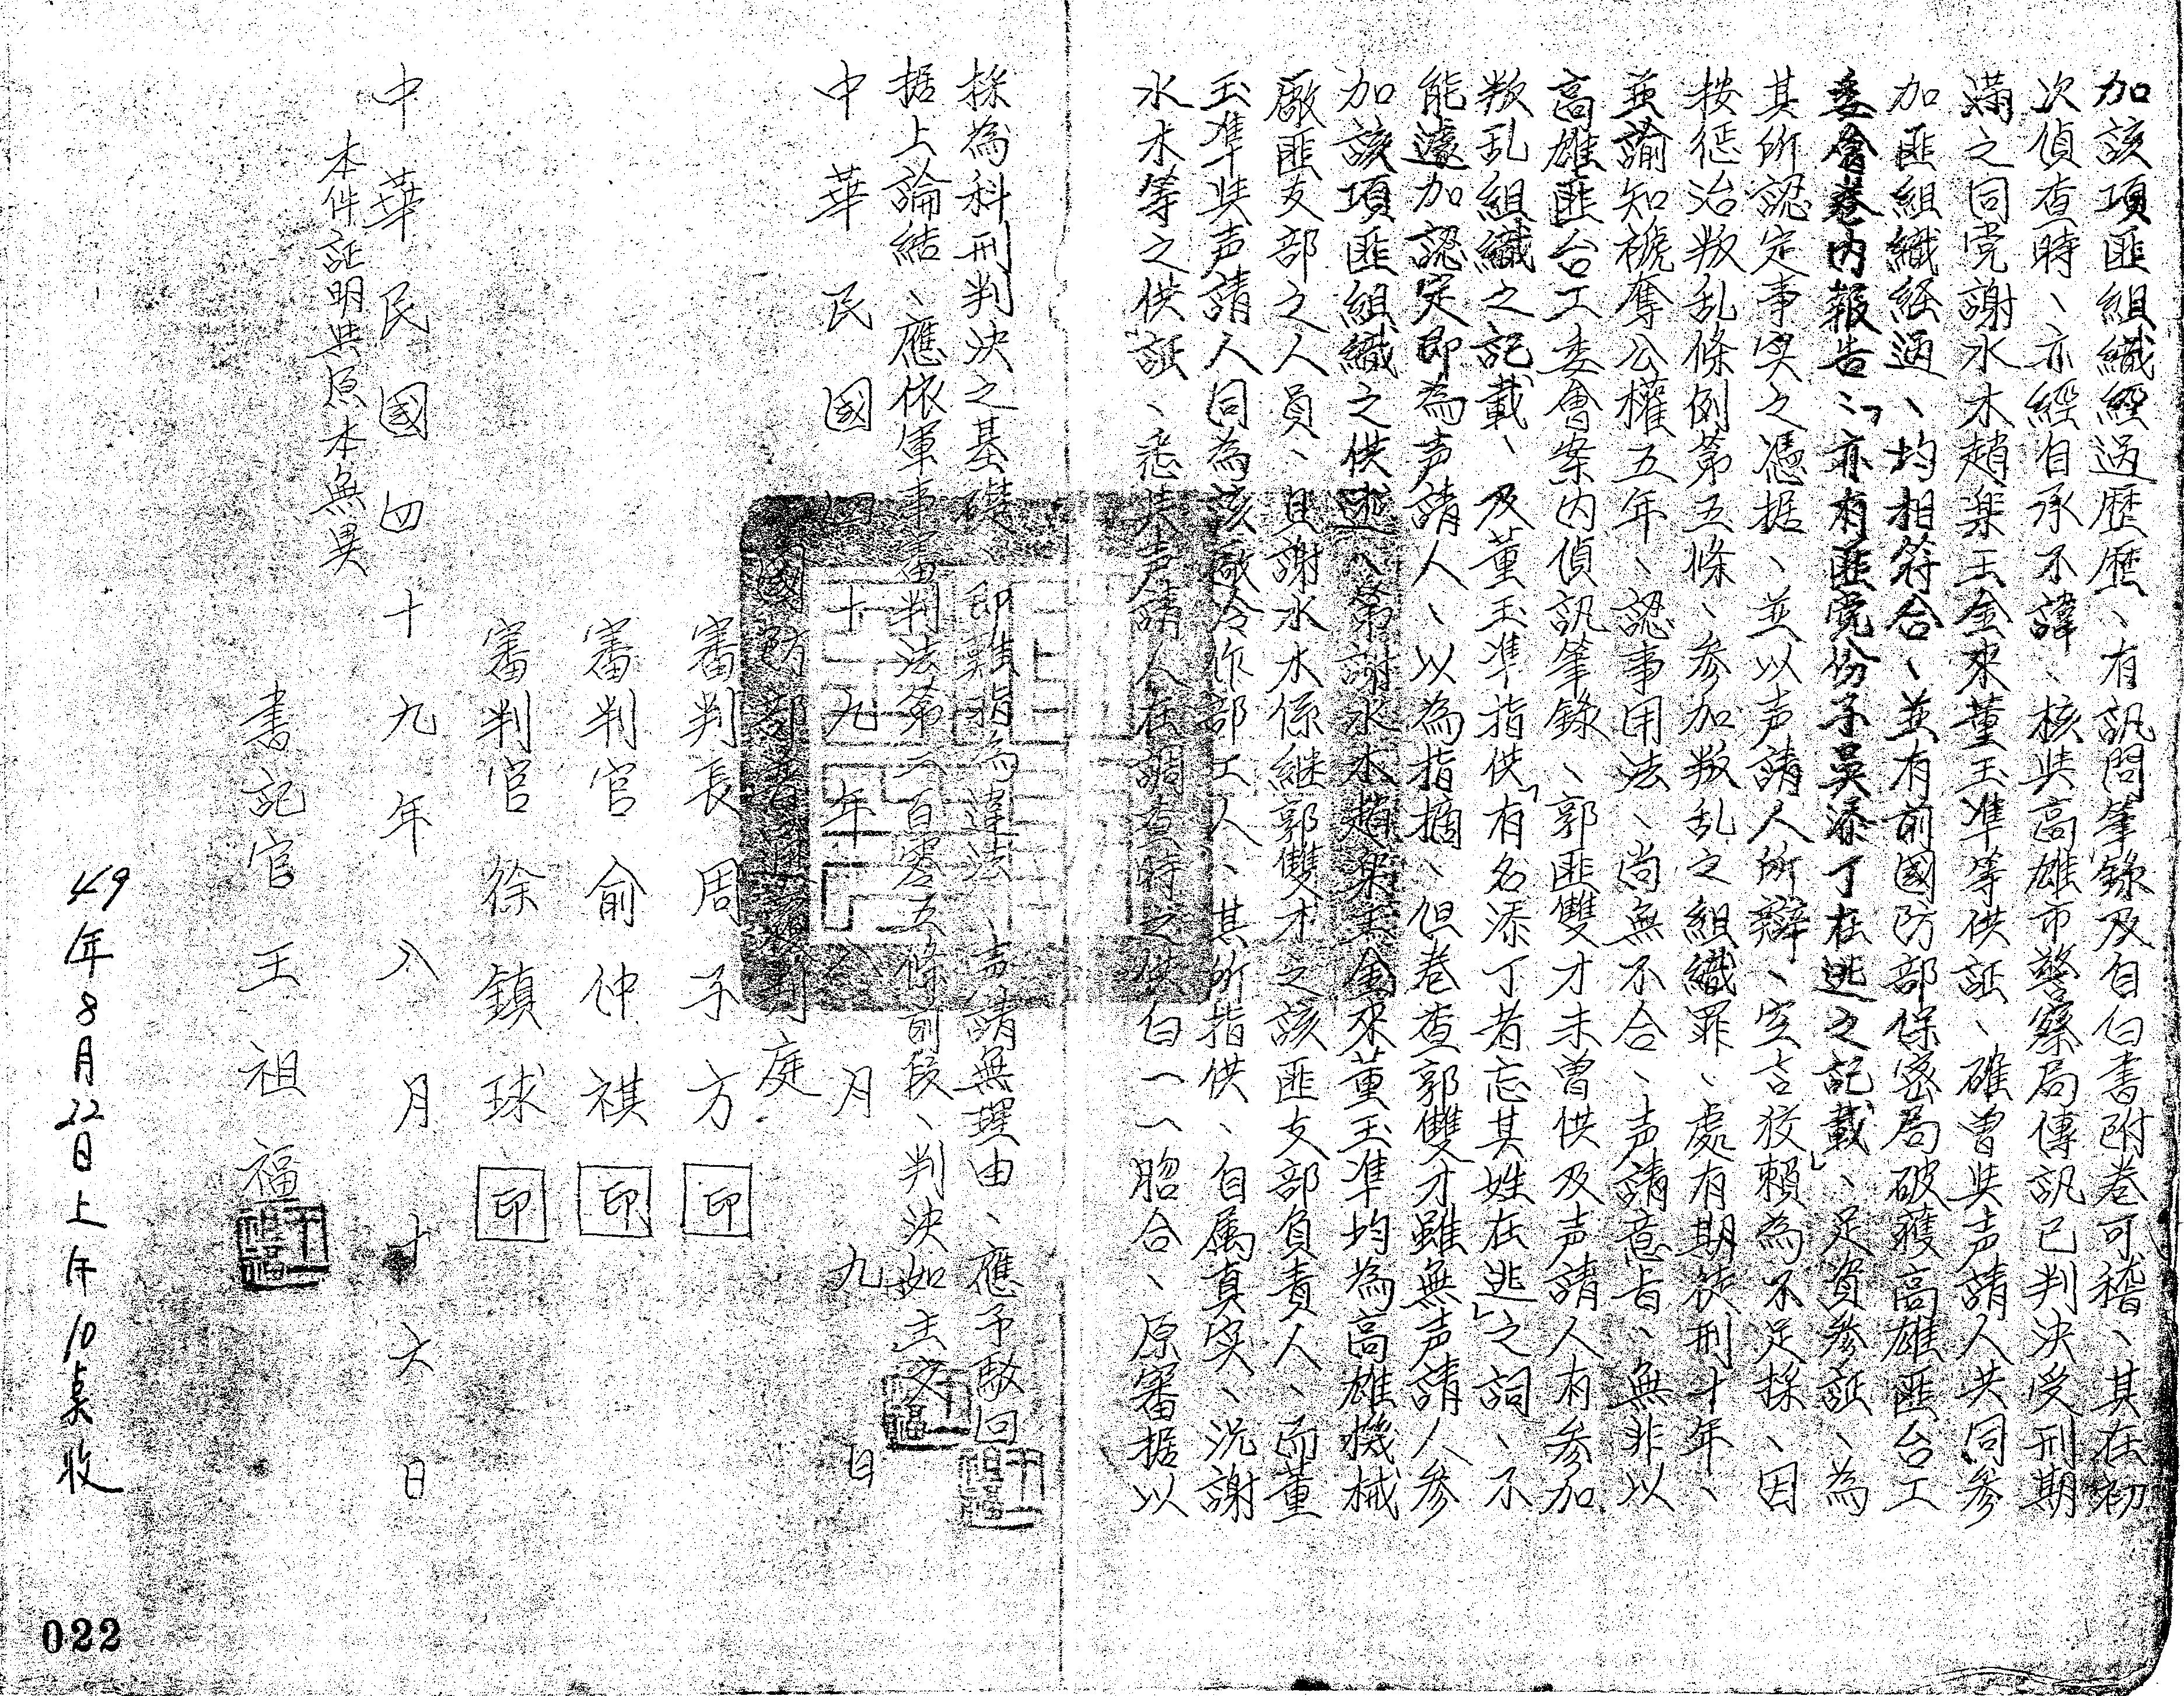 加該項匪組織經过歷歷、有訊問筆錄及自白書附卷可稽、其在初
次偵查時、亦經自承不諱、核與高雄市警察局傳訊已判決受刑期
滿之同党謝水木趙楽玉金來董玉準等供証、確曾與声請人共同參
加匪組織経过、均相符合、並有前國防部保密局破獲高雄匪台工
委會卷内報告：「亦有匪党份子吳添丁在逃之記載」、足資參証、為
其所認定事实之憑据、並以声請人所辯、空言狡賴為不足採、因
按惩治叛乱條例第五條、参加叛乱之組織罪、處有期徒刑十年、
並諭知褫奪公權五年、認事用法、尚無不合、声請意旨、無非以
高雄匪台工委會案内偵訊筆錄、郭匪雙才未曾供及声請人有参加
叛乱組織之記載、及董玉準指供「有名添丁者忘其姓在逃」之詞、不
能遽加認定即為声請人、以為指摘、但卷查郭雙才雖無声請人參
加該項匪組織之供述、第謝水木趙楽玉金來董玉準均為高雄機械
廠匪支部之人員、且謝水木係継郭雙才之該匪支部負責人、而董
玉準與声請人同為該廠冷作部工人、其所指供、自属真実、況謝
水木等之供証、悉與声請人在調查時之供白一一脗合、原審据以
採為科刑判決之基礎、即難指為違法、声請無理由、應予駁回
据上論結、應依軍事審判法第二百零五條前段、判決如主文
中華民國四十九年八月九日
國防部普通覆判庭
審判長周子方 印
審判官俞仲祺 印
審判官徐鎮球 印
中華民國四十九年八月十六日
本件証明與原本無異
書記官王祖福
49年8月22日上午10桌收
022